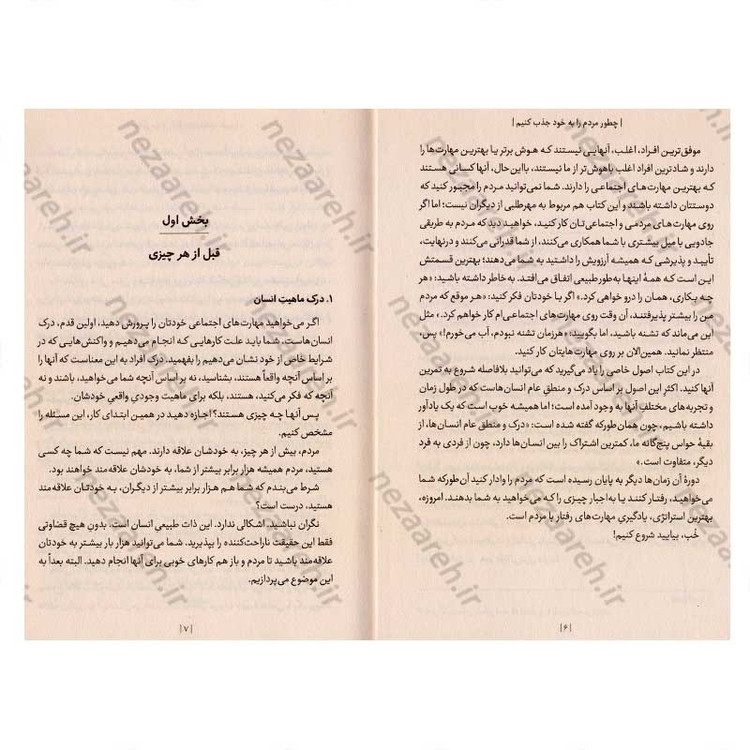 | چطور مردم را به خود جذب کنیم |
موفق‌ترین افراد، اغلب، آنهایی نیستند که هوش برتر یا بهترین مهارت‌ها را
دارند و شادترین افراد اغلب باهوش‌تر از ما نیستند، بااین‌حال، آنها کسانی هستند
که بهترین مهارت‌های اجتماعی را دارند. شما نمی‌توانید مردم را مجبور کنید که
دوستتان داشته باشند و این کتاب هم مربوط به مهرطلبی از دیگران نیست؛ اما اگر
روی مهارت‌های مردمی و اجتماعی‌تان کار کنید، خواهید دید که مردم به طریقی
جادویی با میل بیشتری با شما همکاری می‌کنند، از شما قدرانی می‌کنند و درنهایت،
تأیید و پذیرشی که همیشه آرزویش را داشتید به شما می‌دهند؛ بهترین قسمتش
این است که همهٔ اینها به‌طور طبیعی اتفاق می‌افتد. به خاطر داشته باشید: «هر
چه بکاری، همان را درو خواهی کرد.» اگر با خودتان فکر کنید: «هر موقع که مردم
من را بیشتر پذیرفتند، آن وقت روی مهارت‌های اجتماعی‌ام کار خواهم کرد.» مثل
این می‌ماند که تشنه باشید، اما بگویید: «هرزمان تشنه نبودم، آب می‌خورم!» پس،
منتظر نمانید. همین‌الان بر روی مهارت‌هایتان کار کنید.
در این کتاب اصول خاصی را یاد می‌گیرید که می‌توانید بلافاصله شروع به تمرین
آنها کنید. اکثر این اصول بر اساس درک و منطق عام انسان‌هاست که در طول زمان
و تجربه‌های مختلف آنها به وجود آمده است؛ اما همیشه خوب است که یک یادآور
داشته باشیم، چون همان‌طورکه گفته شده است: «درک و منطق عام انسان‌ها، از
بقیهٔ حواس پنج‌گانه ما، کمترین اشتراک را بین انسان‌ها دارد، چون از فردی به فرد
دیگر، متفاوت است.»
دورهٔ آن زمان‌ها دیگر به پایان رسیده است که مردم را وادار کنید آن‌طورکه شما
می‌خواهید، رفتار کنند یا به اجبار چیزی را که می‌خواهید به شما بدهند. امروزه،
بهترین استراتژی، یادگیری مهارت‌های رفتار با مردم است.
خُب، بیایید شروع کنیم!
|۶|
بخش اول
قبل از هر چیزی
۱. درک ماهیت انسان
اگر می‌خواهید مهارت‌های اجتماعی خودتان را پرورش دهید، اولین قدم، درک
انسان‌هاست. شما باید علت کارهایی که انجام می‌دهیم و واکنش‌هایی که در
شرایط خاص از خود نشان می‌دهیم را بفهمید. درک افراد به این معناست که آنها را
بر اساس آنچه واقعاً هستند، بشناسید، نه بر اساس آنچه شما می‌خواهید، باشند و نه
آنچه که فکر می‌کنید، هستند، بلکه برای ماهیت وجودیِ واقعیِ خودشان.
پس آنها چه چیزی هستند؟ اجازه دهید در همین ابتدای کار، این مسئله را
مشخص کنیم.
مردم، بیش از هر چیز، به خودشان علاقه دارند. مهم نیست که شما چه کسی
هستید، مردم همیشه هزار برابر بیشتر از شما، به خودشان علاقه‌مند خواهند بود.
شرط می‌بندم که شما هم هزار برابر بیشتر از دیگران، به خودتان علاقه‌مند
هستید، درست است؟
نگران نباشید. اشکالی ندارد. این ذات طبیعی انسان است. بدون هیچ قضاوتی
فقط این حقیقت ناراحت‌کننده را بپذیرید. شما می‌توانید هزار بار بیشتر به خودتان
علاقه‌مند باشید تا مردم و باز هم کارهای خوبی برای آنها انجام دهید. البته بعداً به
این موضوع می‌پردازیم.
|۷|
nezaareh.ir